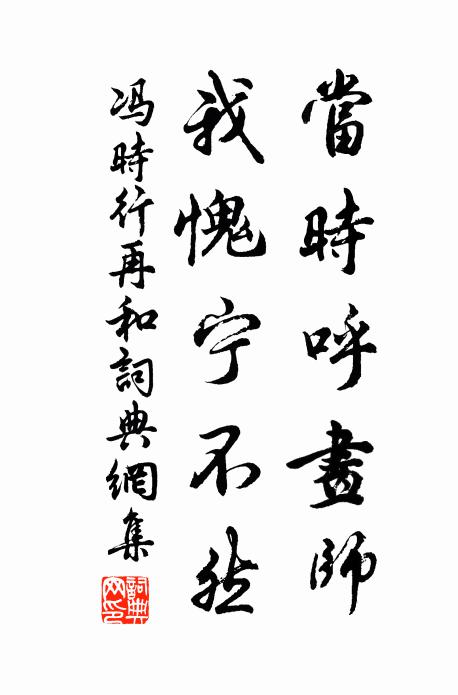 當時呼畫師
我愧宁不然
冯時行再和詞典網集
詞典网印